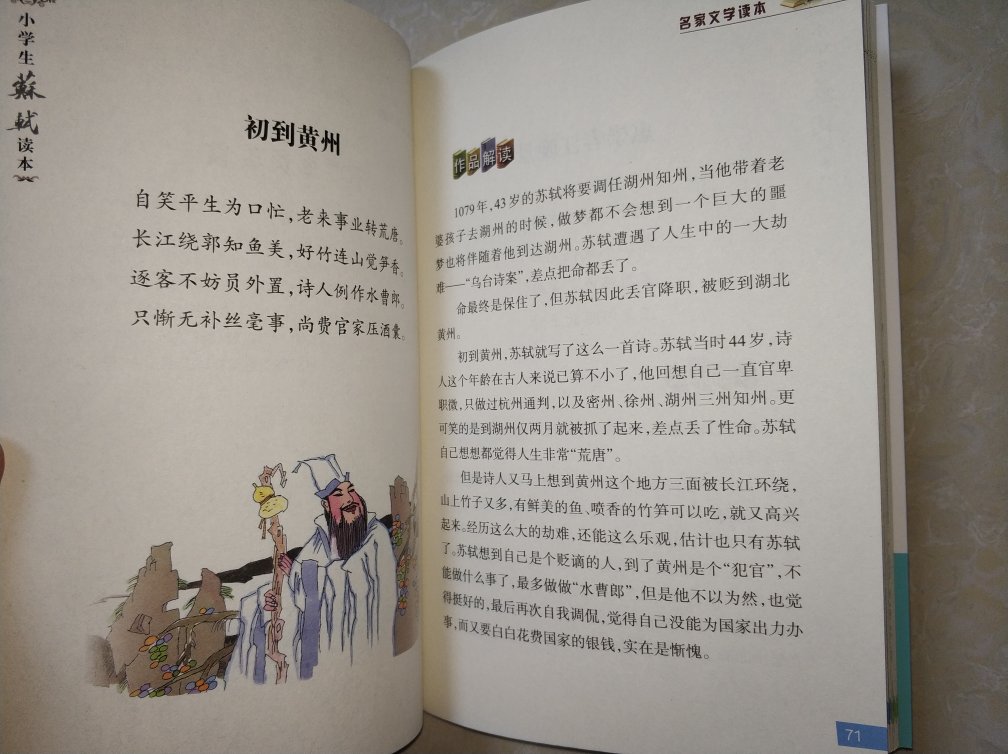 小学生苏轼读本
初到黄州
自笑平生为口忙，老来事业转荒唐。
长江绕郭知鱼美，好竹连山觉笋香。
逐客不妨员外置，诗人例作水曹郎。
只惭无补丝毫事，尚费官家压酒囊。
名家文学读本
作品解读
1079年，43岁的苏轼将要调任湖州知州，当他带着老
婆孩子去湖州的时候，做梦都不会想到一个巨大的噩
梦也将伴随着他到达湖州。苏轼遭遇了人生中的一大劫
难——“乌台诗案”，差点把命都丢了。
命最终是保住了，但苏轼因此丢官降职，被贬到湖北
黄州。
初到黄州，苏轼就写了这么一首诗。苏轼当时44岁，诗
人这个年龄在古人来说已算不小了，他回想自己一直官卑
职微，只做过杭州通判，以及密州、徐州、湖州三州知州。更
可笑的是到湖州仅两月就被抓了起来，差点丢了性命。苏轼
自己想想都觉得人生非常“荒唐”。
但是诗人又马上想到黄州这个地方三面被长江环绕，
山上竹子又多，有鲜美的鱼、喷香的竹笋可以吃，就又高兴
起来。经历这么大的劫难，还能这么乐观，估计也只有苏轼
了。苏轼想到自己是个贬谪的人，到了黄州是个“犯官”，不
能做什么事了，最多做做“水曹郎”，但是他不以为然，也觉
得挺好的，最后再次自我调侃，觉得自己没能为国家出力办
事，而又要白白花费国家的银钱，实在是惭愧。
71